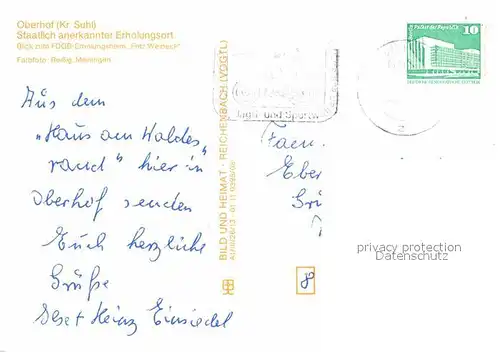 Oberhof (Kr. Suhl)
Staatlich anerkannter Erholungsort
Blick zum FDGB-Erholungsheim „Fritz Weineck“
Farbfoto: Meiningen
Aus dem
„Haus am Waldes
rand“ hier in
Oberhof senden
Euch herzliche
Grüße
Heinz Einsiedel
BILD UND HEIMAT · REICHENBACH (VOGTL)
und Sport
10
Fam.
Eber
Grü
8
privacy protection
Datenschutz